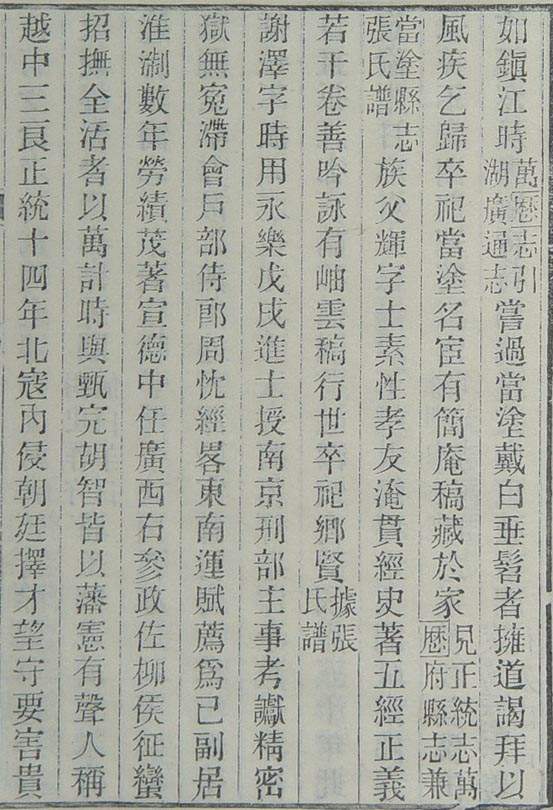 如鎮江時萬歷志引湖廣通志嘗過當塗戴白垂髫者擁道謁拜以
風疾乞歸卒祀當塗名宦有簡庵稿藏於家見正統志萬歷府縣志兼
當塗縣志張氏譜族父輝字士素性孝友淹貫經史著五經正義
若干卷善吟詠有岫雲稿行世卒祀鄉賢據張氏譜
謝澤字時用永樂戊戌進士授南京刑部主事考讞精密
獄無冤滯會戶部侍郎周忱經畧東南運賦薦爲己副居
淮淛數年勞績茂著宣德中任廣西右參政佐柳侯征蠻
招撫全活者以萬計時與甄完胡智皆以藩憲有聲人稱
越中三良正統十四年北寇內侵朝廷擇才望守要害貴